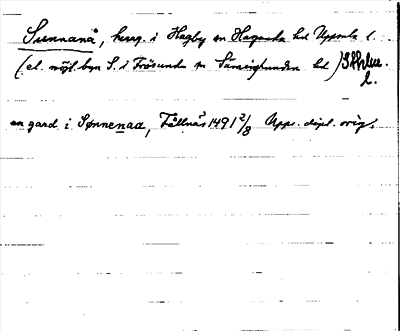 Sunnanå, herrg. i Hagby sn Hagunda hd Uppsala l.
(el. möjl. byn S. i Frösunda sn Seminghundra hd) Sthlm. l.
en gard i Sønnenaa, Tällnäs 1491 2/8 Upps. dipl. orig.